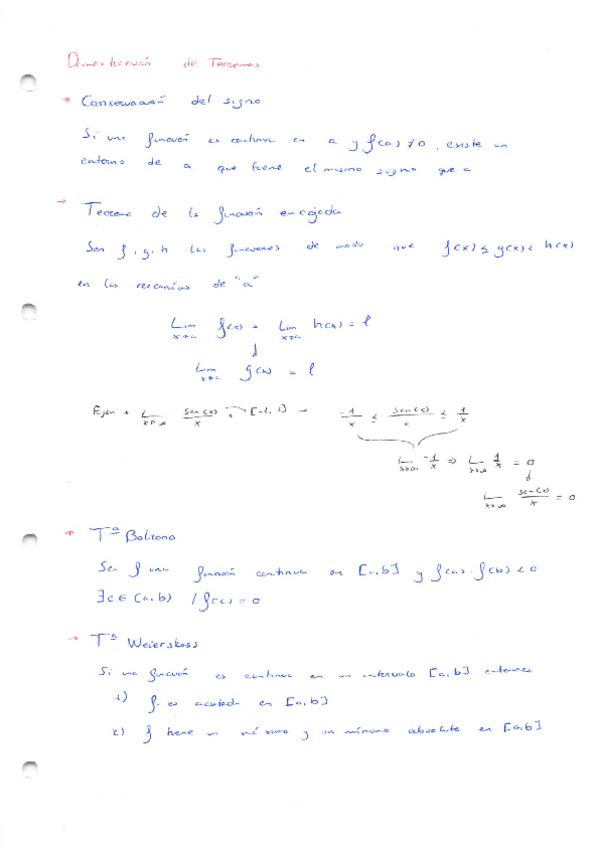 Demostración de Teoremas
→ Conservación del signo
Si una función es continua en a y f(a) ≠ 0, existe un
entorno de a que tiene el mismo signo que a
→ Teorema de la función encajada
Sen f, g, h las funciones de modo que f(x) ≤ g(x) < h(x)
en las cercanías de "a"
Lim x→a f(x) = Lim x→a h(x) = l
↓
Lim x→a g(x) = l
Ejem → L x→∞ sen(x)/x → [-1, 1] → -1/x ≤ sen(x)/x ≤ 1/x
L x→∞ -1/x => L x→∞ 1/x = 0
↓
L x→∞ sen(x)/x = 0
→ Tª Bolzano
Sea f una función continua en [a,b] y f(a)·f(b) < 0
∃c ∈ (a,b) / f(c) = 0
→ Tª Weierstrass
Si una función es continua en un intervalo [a,b] entonces
1) f es acotada en [a,b]
2) f tiene un máximo y un mínimo absoluto en [a,b]